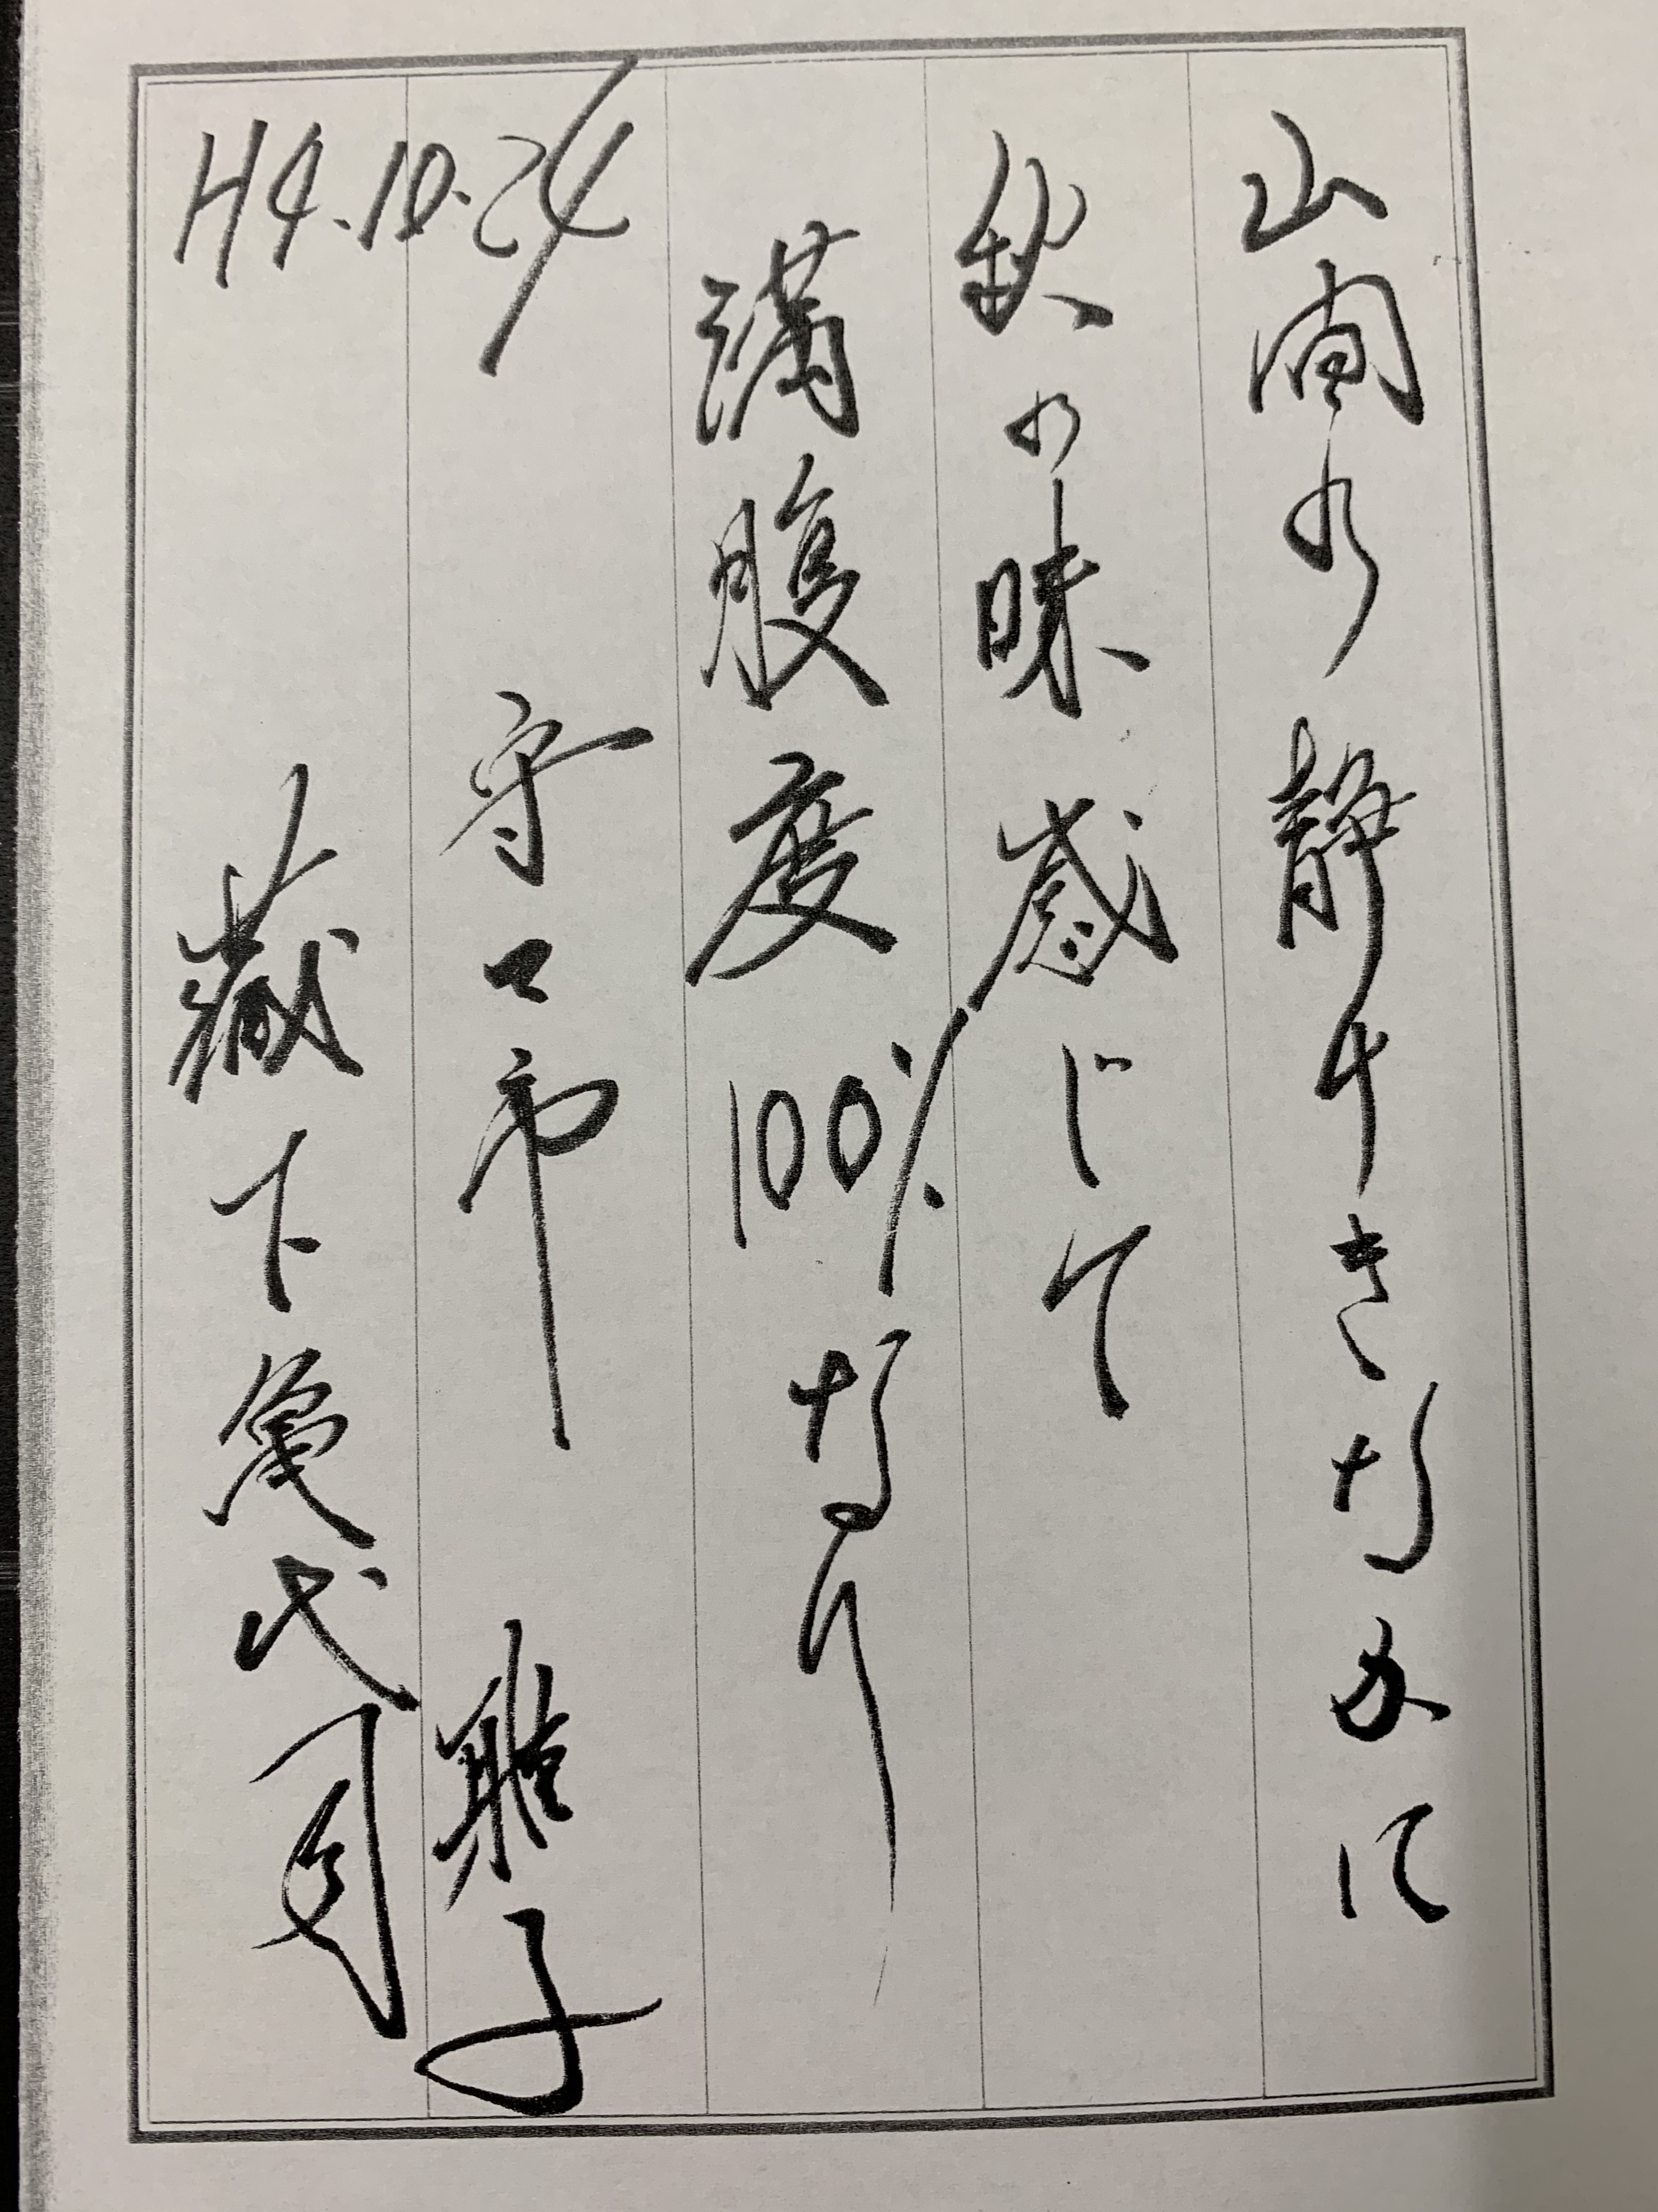 山間の静けきなかに
秋の味感じて
満腹度100%なり
H4.10.24
守口市 雅子
藏下亀代司